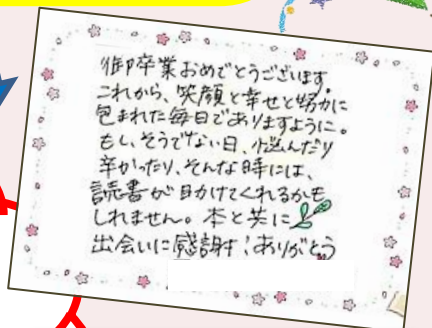 御卒業おめでとうございます。
これから、笑顔と幸せと努力に
包まれた毎日でありますように。
もし、そうでない日、悩んだり
辛かったり、そんな時には、
読書が助けてくれるかも
しれません。本と共に
出会いに感謝!ありがとう